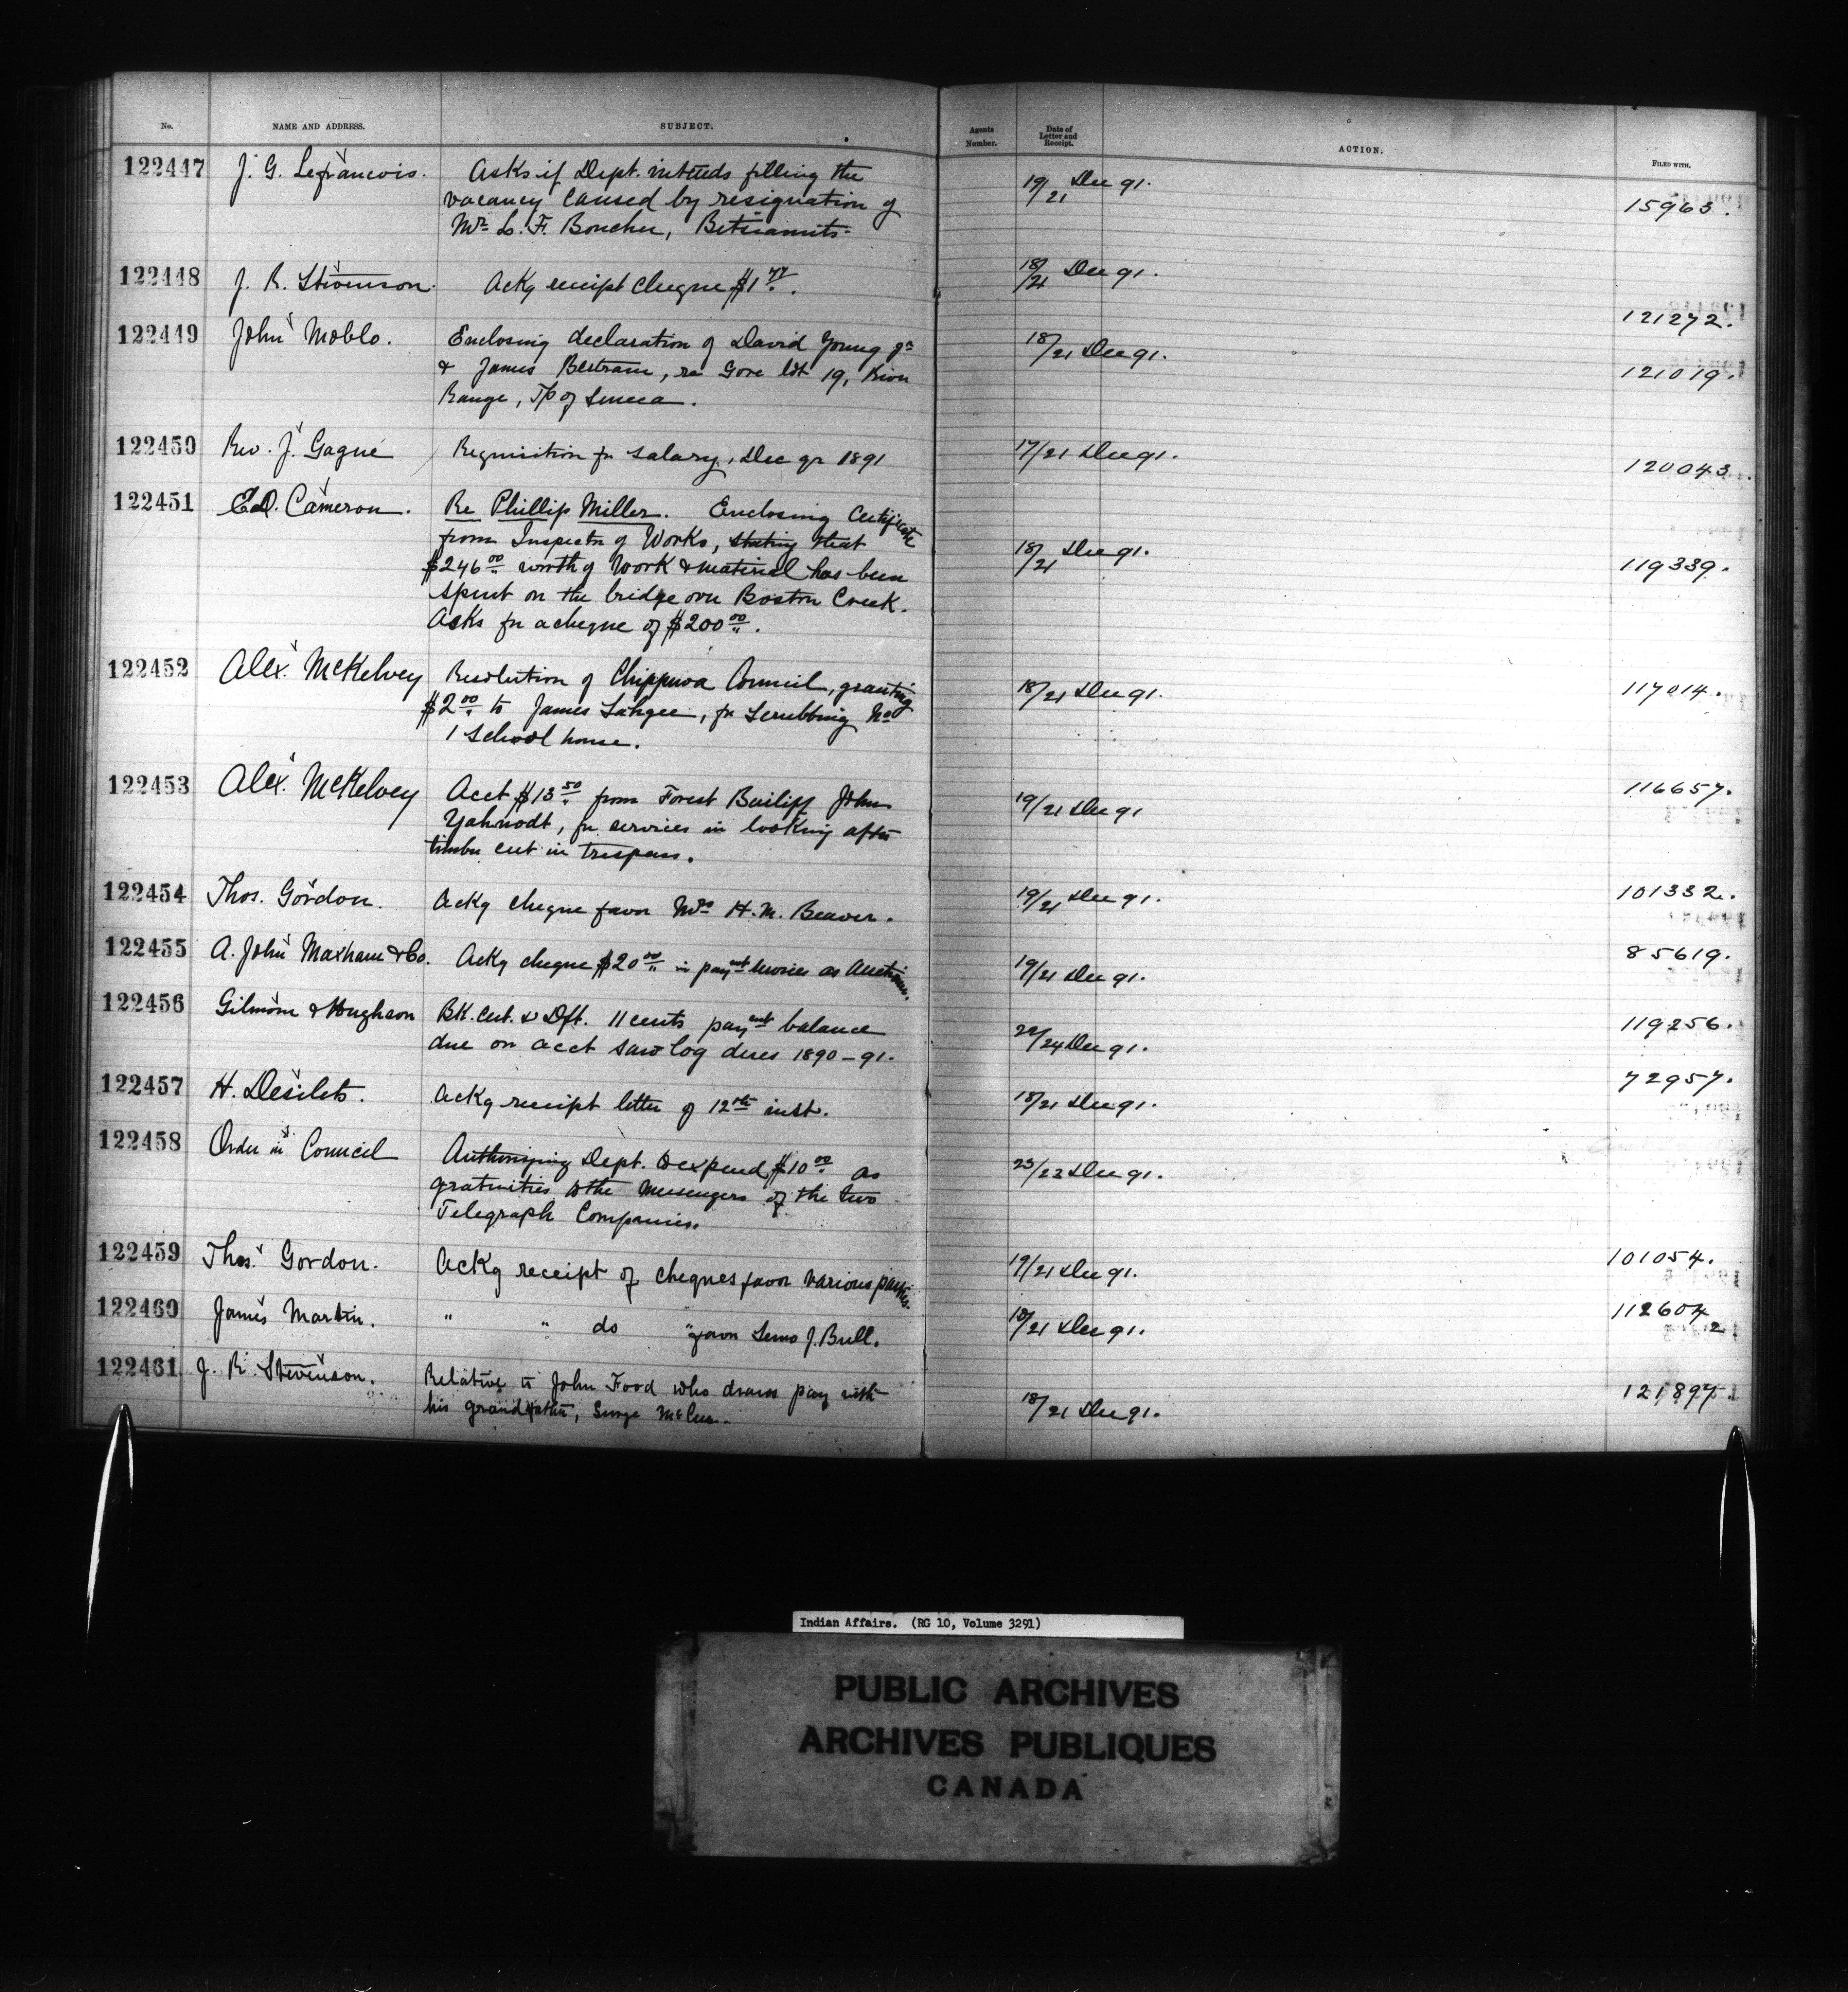 No. NAME AND ADDRESS. SUBJECT. Agents Number. Date of Letter and Receipt. ACTION. FILED WITH.
122447 J. G. Lefrancois. Asks if Dept. intends filling the 19/21 Dec 91.
vacancy caused by resignation of 15963.
Mr. L. F. Boucher, Betsiamits.
122448 J. R. Stevenson. Ackg receipt cheque $1 77. 18/21 Dec 91.
121272.
122449 John Moblo. Enclosing declaration of David Young jr 18/21 Dec 91.
& James Bertram, re Gore lot 19, River 121019.
Range, Tp of Seneca.
122450 Rev. J. Gagné Requisition for salary, Dec qr 1891 17/21 Dec 91.
120043.
122451 E.D. Cameron. Re Phillip Miller. Enclosing Certificate
from Inspector of Works, stating that 18/21 Dec 91.
$246 00 worth of work & material has been 119339.
spent on the bridge over Boston Creek.
Asks for a cheque of $200 00.
122452 Alex. McKelvey Resolution of Chippewa Council, granting 18/21 Dec 91. 117014.
$2 00 to James, for scrubbing No
1 School house.
122453 Alex. McKelvey Acct $13 50 from Forest Bailiff John 19/21 Dec 91 116657.
Yahnodt, for services in looking after
timber cut in trespass.
122454 Thos. Gordon. Ackg cheque favor Mrs H. M. Beaver. 19/21 Dec 91. 101332.
122455 A. John Maxham & Co. Ackg cheque $20 00 in payment services as Auction. 19/21 Dec 91. 85619.
122456 Gilmour & Hughson Bk. Cert. & Dft. 11 cents payment balance 22/24 Dec 91. 119256.
due on acct saw log dues 1890-91.
122457 H. Desilets. Ackg receipt letter of 12th inst. 18/21 Dec 91. 72957.
122458 Order in Council Authorizing Dept. to expend $10 00 as 23/23 Dec 91.
gratuities to the Messengers of the two
Telegraph Companies.
122459 Thos. Gordon. Ackg receipt of cheques favor various parties. 19/21 Dec 91. 101054.
122460 James Martin. " " do " favor J. Bull. 18/21 Dec 91. 112604 2
122461 J. R. Stevenson. Relative to John Food who draws pay with 18/21 Dec 91. 121897.
his grandfather,
Indian Affairs. (RG 10, Volume 3291)
PUBLIC ARCHIVES
ARCHIVES PUBLIQUES
CANADA